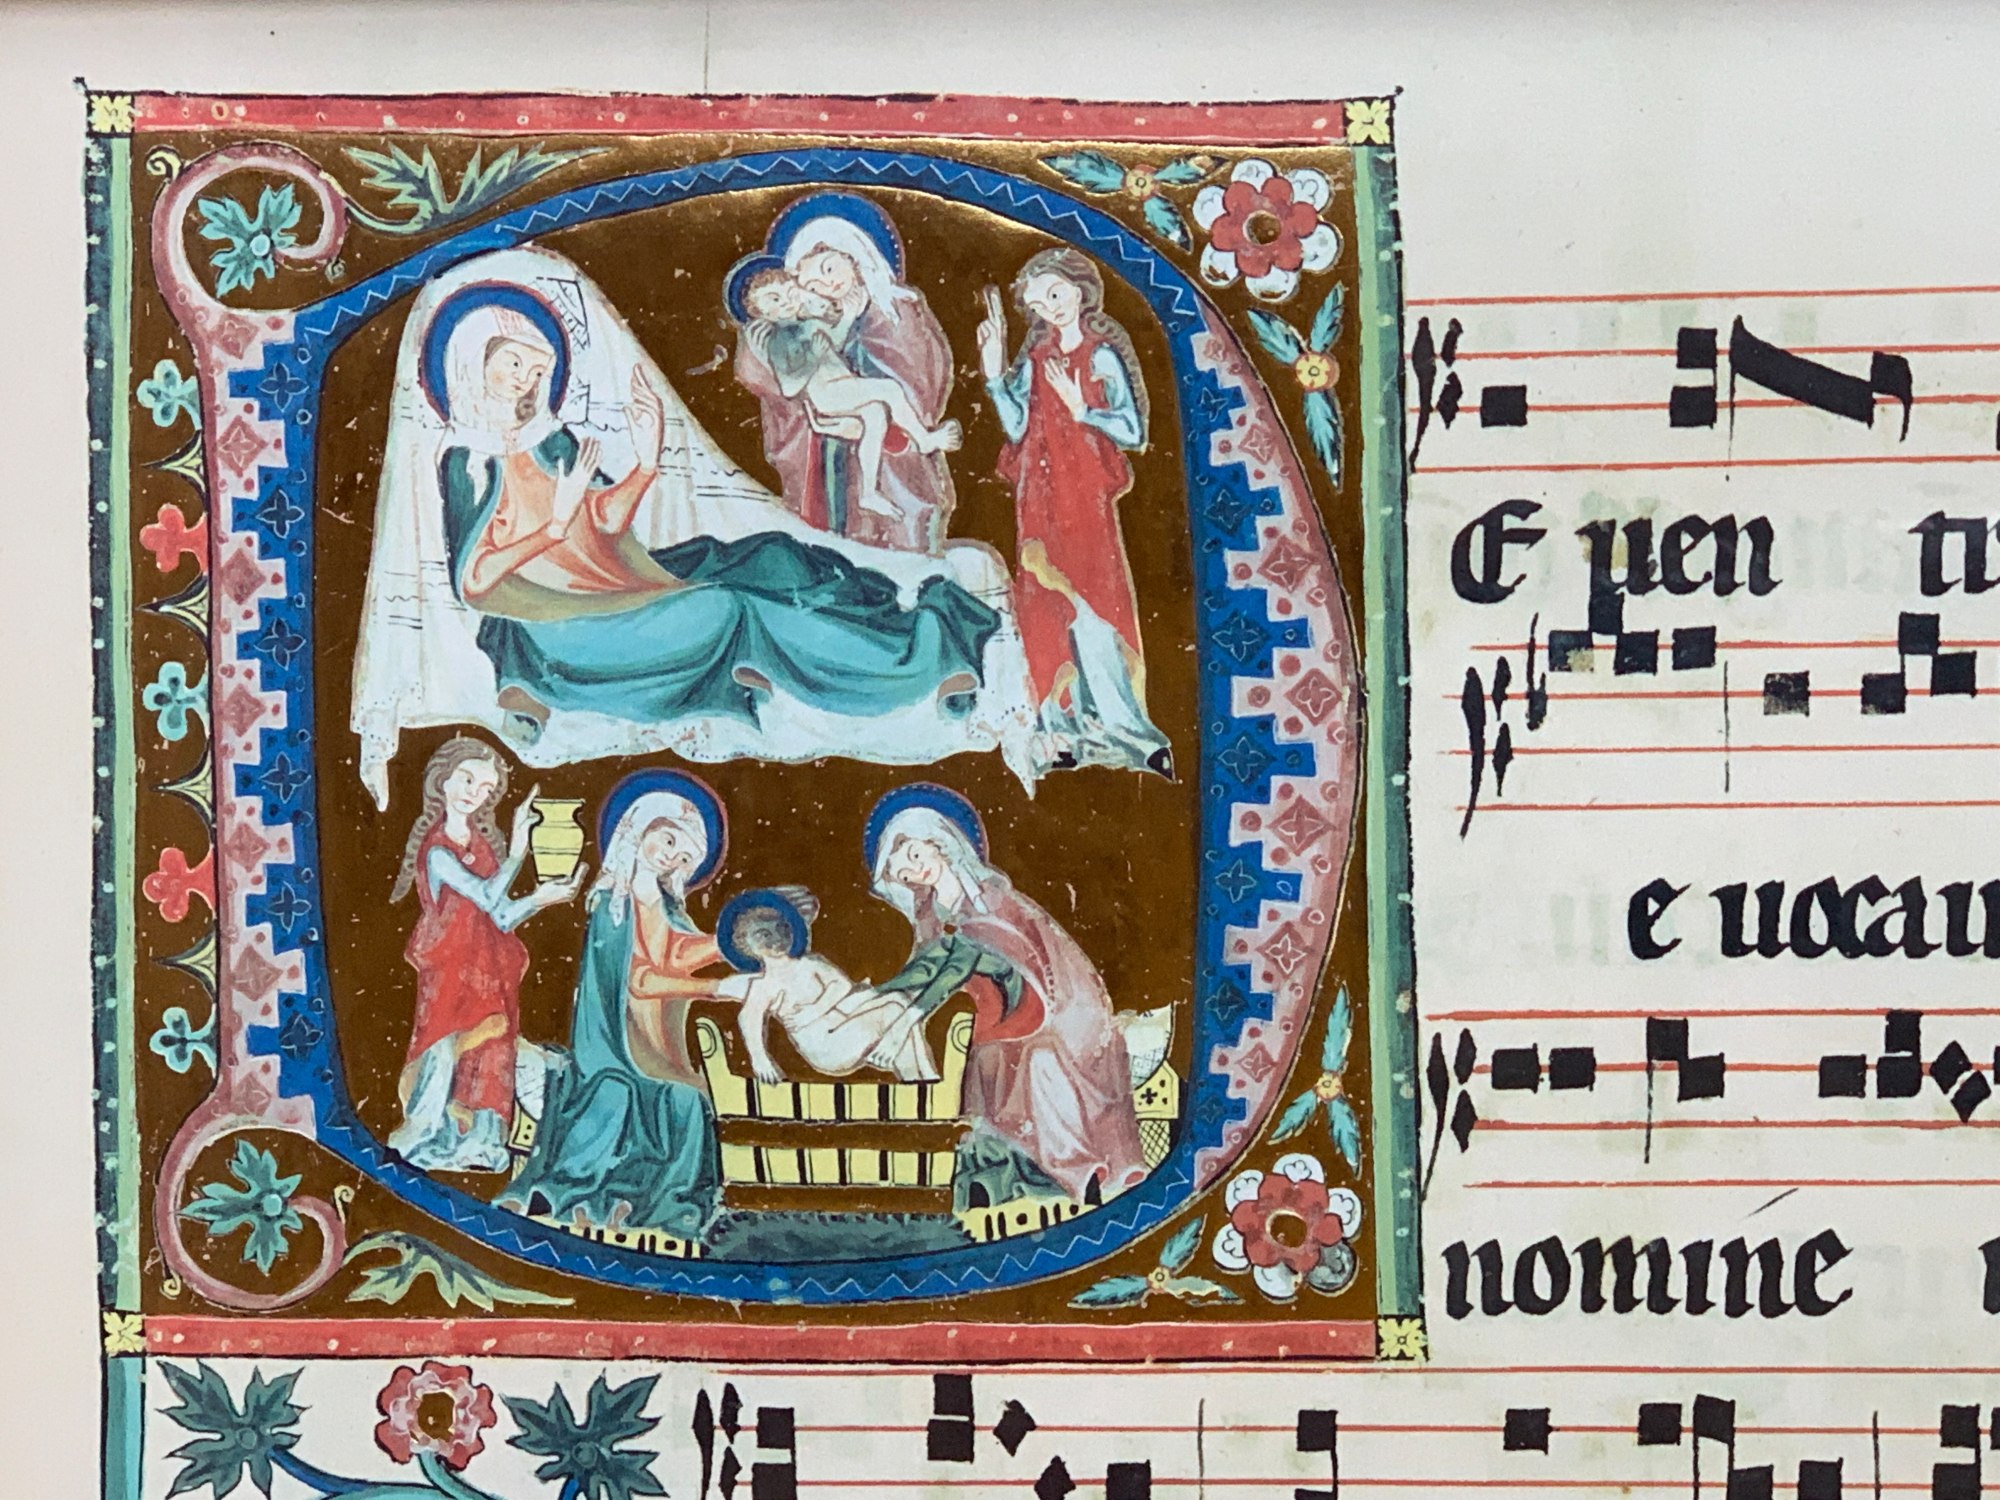 DE uen tr
e uocau
nomine